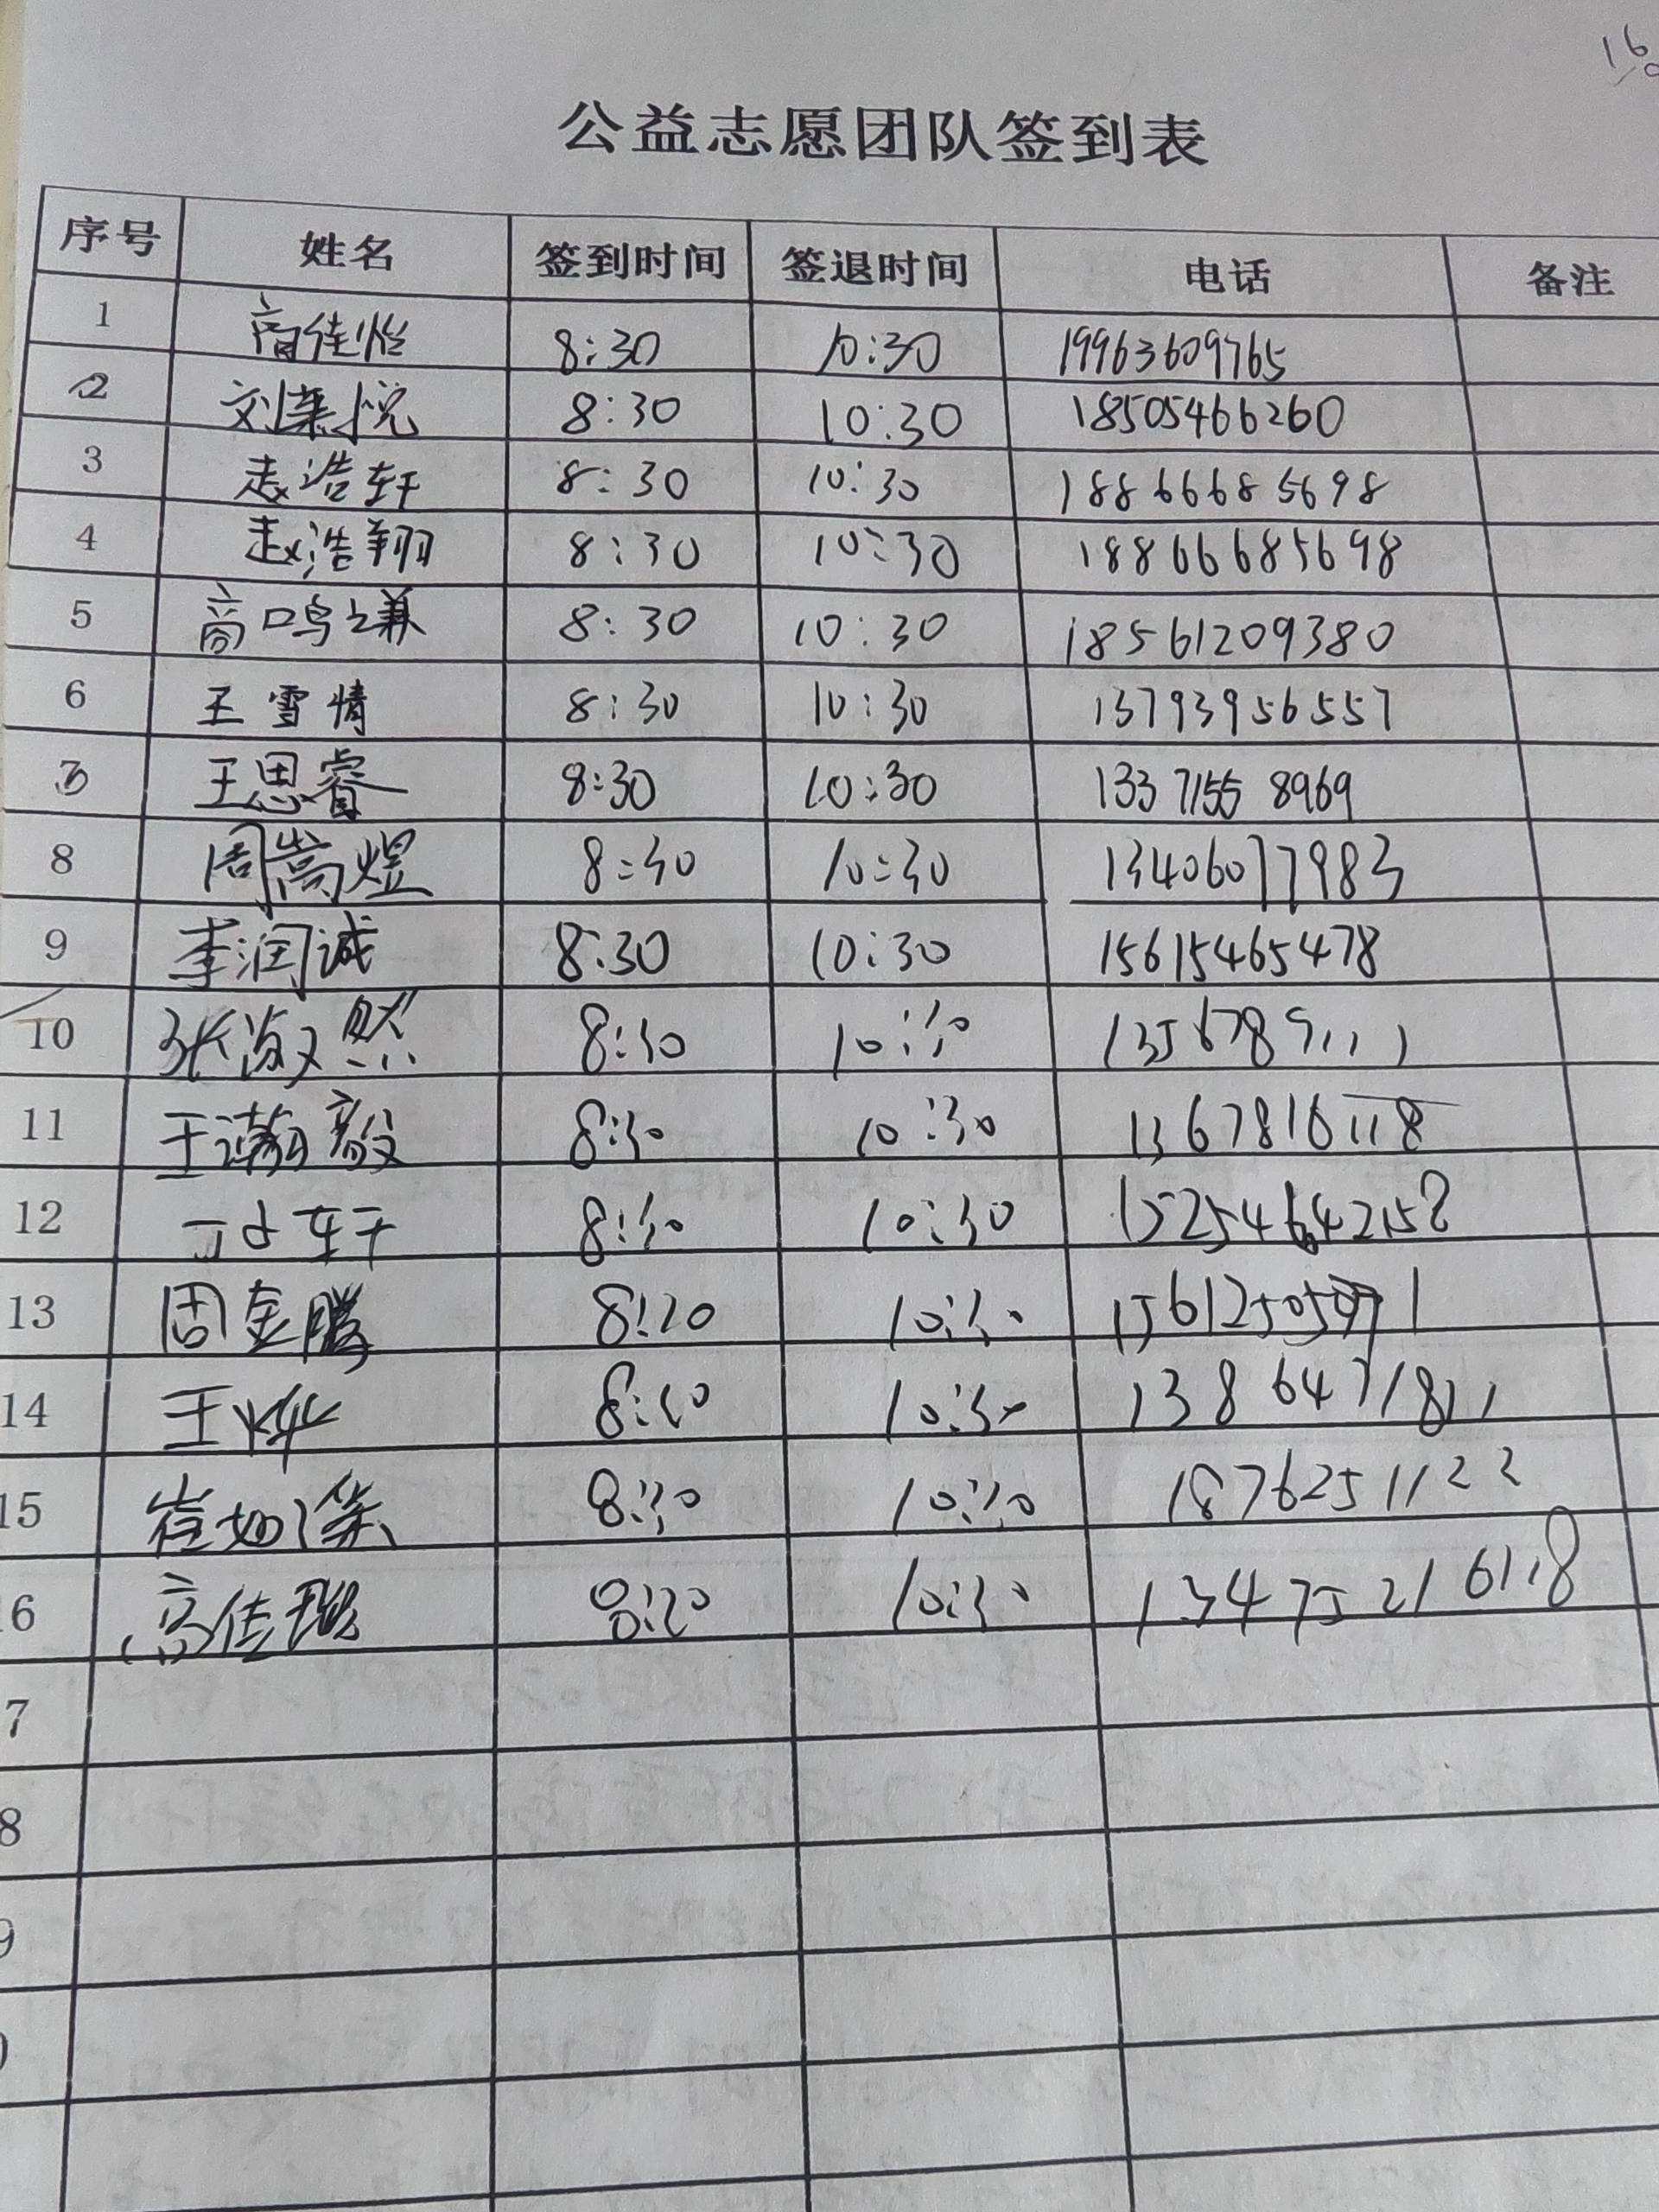 16
公益志愿团队签到表
序号 姓名 签到时间 签退时间 电话 备注
1 高佳怡 8:30 10:30 19963609765
2 刘墨悦 8:30 10:30 18505466260
3 赵浩轩 8:30 10:30 18866685698
4 赵浩翔 8:30 10:30 18866685698
5 高鸣谦 8:30 10:30 18561209380
6 王雪情 8:30 10:30 13793956557
7 王思睿 8:30 10:30 13371558969
8 周嵩煜 8:30 10:30 13406077983
9 李润诚 8:30 10:30 15615465478
10 张淑然 8:30 10:30 13567891111
11 王瀚毅 8:30 10:30
12 8:30 10:30
13 周金腾 8:30 10:30
14 王烨 8:30 10:30 13864771811
15 崔如 8:30 10:30 18762511122
16 高佳琨 8:30 10:30
7
8
9